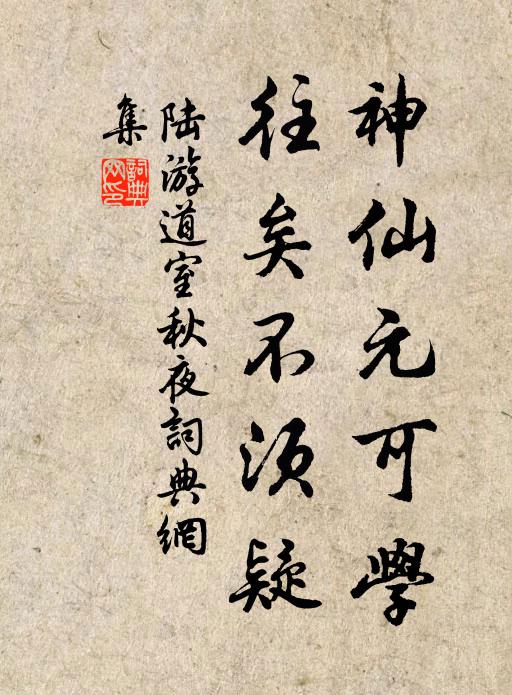 神仙元可學
往矣不須疑
陸游道室秋夜詞典網
集
詞典網印